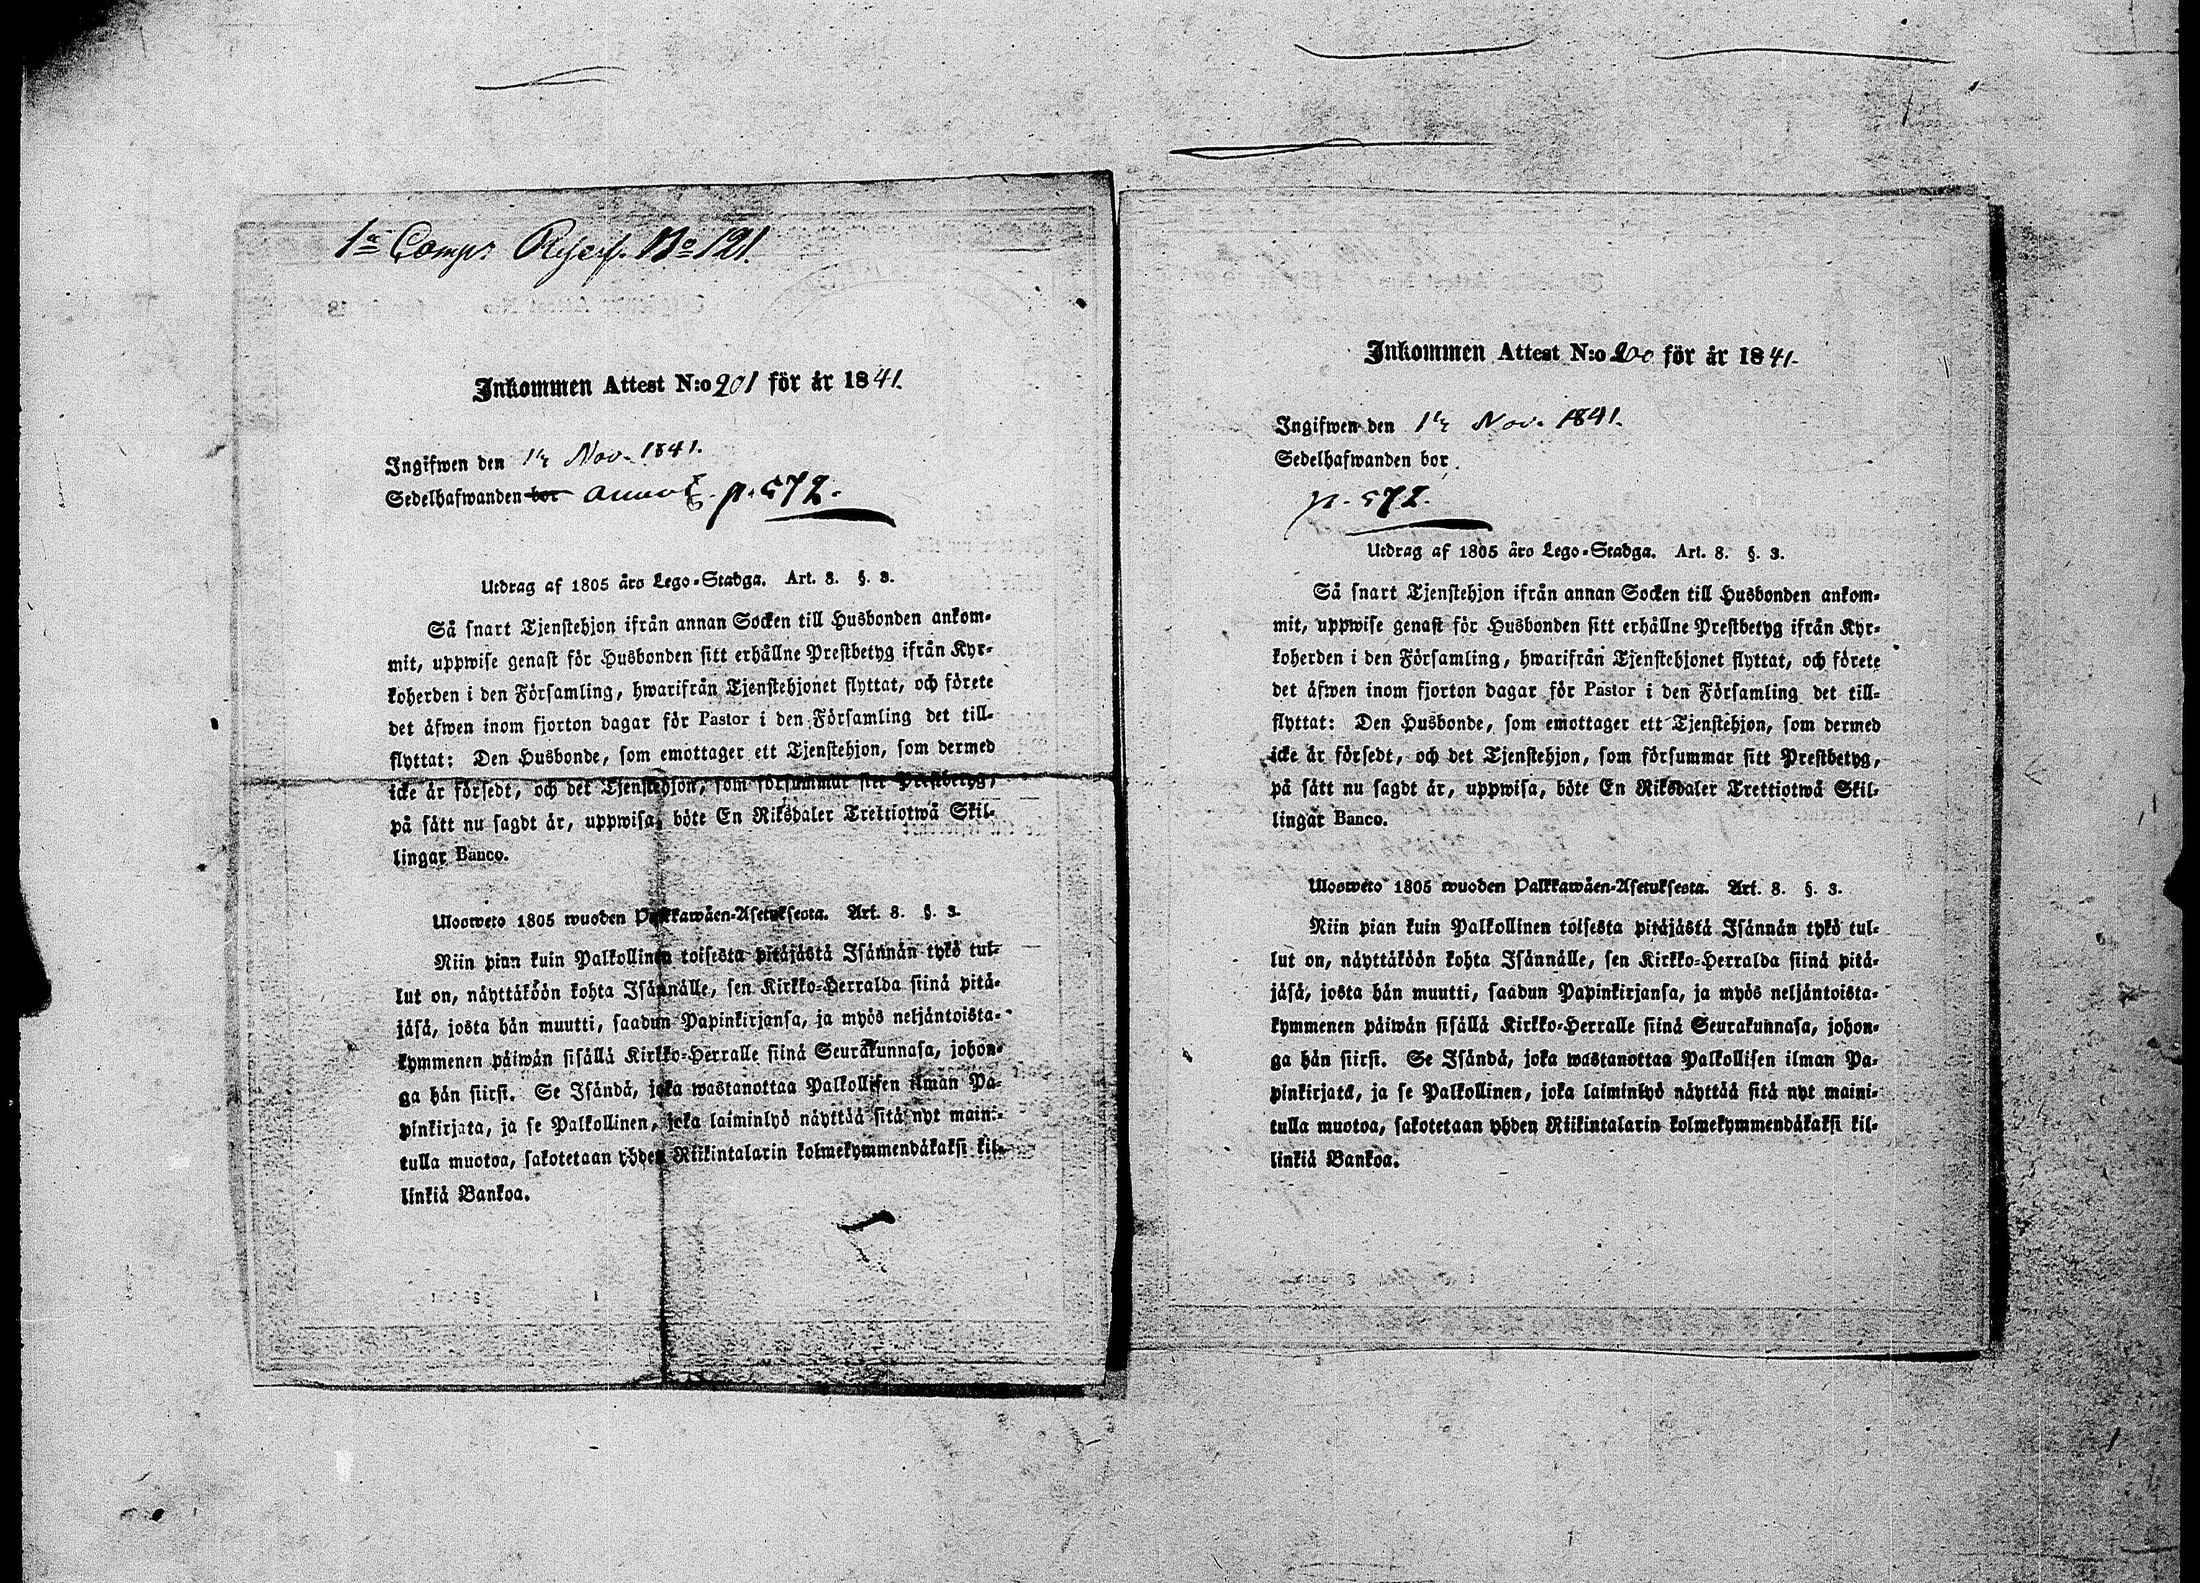 1a Comps N:o 121.
Inkommen Attest N:o 201 för år 1841.
Ingifwen den Nov. 1841.
Sedelhafwanden bor p. 572.
Utdrag af 1805 års Lego-Stadga. Art. 8. §. 3.
Så snart Tjenstehjon ifrån annan Socken till Husbonden ankom-
mit, uppwise genast för Husbonden sitt erhållne Prestbetyg ifrån Kyr-
koherden i den Församling, hwarifrån Tjenstehjonet flyttat, och förete
det äfwen inom fjorton dagar för Pastor i den Församling det till-
flyttat: Den Husbonde, som emottager ett Tjenstehjon, som dermed
icke är försedt, och det Tjenstehjon, som försummar sitt Prestbetyg,
på sätt nu sagdt är, uppwisa, böte En Riksdaler Trettiotwå Skil-
lingar Banco.
Uloswèto 1805 wuoden Palkkawäen-Asetuksesta. Art. 8. §. 3.
Niin pian kuin Palkollinen toisesta pitäjästä Isännän tykö tul-
lut on, näyttäköön kohta Isännälle, sen Kirkko-Herralda siinä pitä-
jäsä, josta hän muutti, saadun Papinkirjansa, ja myös neljäntoista-
kymmenen päiwän sisällä Kirkko-Herralle siinä Seurakunnasa, johon-
ga hän siirsi. Se Isändä, joka wastanottaa Palkollisen ilman Pa-
pinkirjata, ja se Palkollinen, joka laiminlyö näyttää sitä nyt maini-
tulla muotoa, sakotetaan yhden Riikintalarin kolmekymmendäkaksi kil-
linkiä Bankoa.
Inkommen Attest N:o 200 för år 1841.
Ingifwen den Nov. 1841.
Sedelhafwanden bor
p. 572.
Utdrag af 1805 års Lego-Stadga. Art. 8. §. 3.
Så snart Tjenstehjon ifrån annan Socken till Husbonden ankom-
mit, uppwise genast för Husbonden sitt erhållne Prestbetyg ifrån Kyr-
koherden i den Församling, hwarifrån Tjenstehjonet flyttat, och förete
det äfwen inom fjorton dagar för Pastor i den Församling det till-
flyttat: Den Husbonde, som emottager ett Tjenstehjon, som dermed
icke är försedt, och det Tjenstehjon, som försummar sitt Prestbetyg,
på sätt nu sagdt är, uppwisa, böte En Riksdaler Trettiotwå Skil-
lingar Banco.
Uloswèto 1805 wuoden Palkkawäen-Asetuksesta. Art. 8. §. 3.
Niin pian kuin Palkollinen toisesta pitäjästä Isännän tykö tul-
lut on, näyttäköön kohta Isännälle, sen Kirkko-Herralda siinä pitä-
jäsä, josta hän muutti, saadun Papinkirjansa, ja myös neljäntoista-
kymmenen päiwän sisällä Kirkko-Herralle siinä Seurakunnasa, johon-
ga hän siirsi. Se Isändä, joka wastanottaa Palkollisen ilman Pa-
pinkirjatä, ja se Palkollinen, joka laiminlyö näyttää sitä nyt maini-
tulla muotoa, sakotetaan yhden Riikintalarin kolmekymmendäkaksi kil-
linkiä Bankoa.